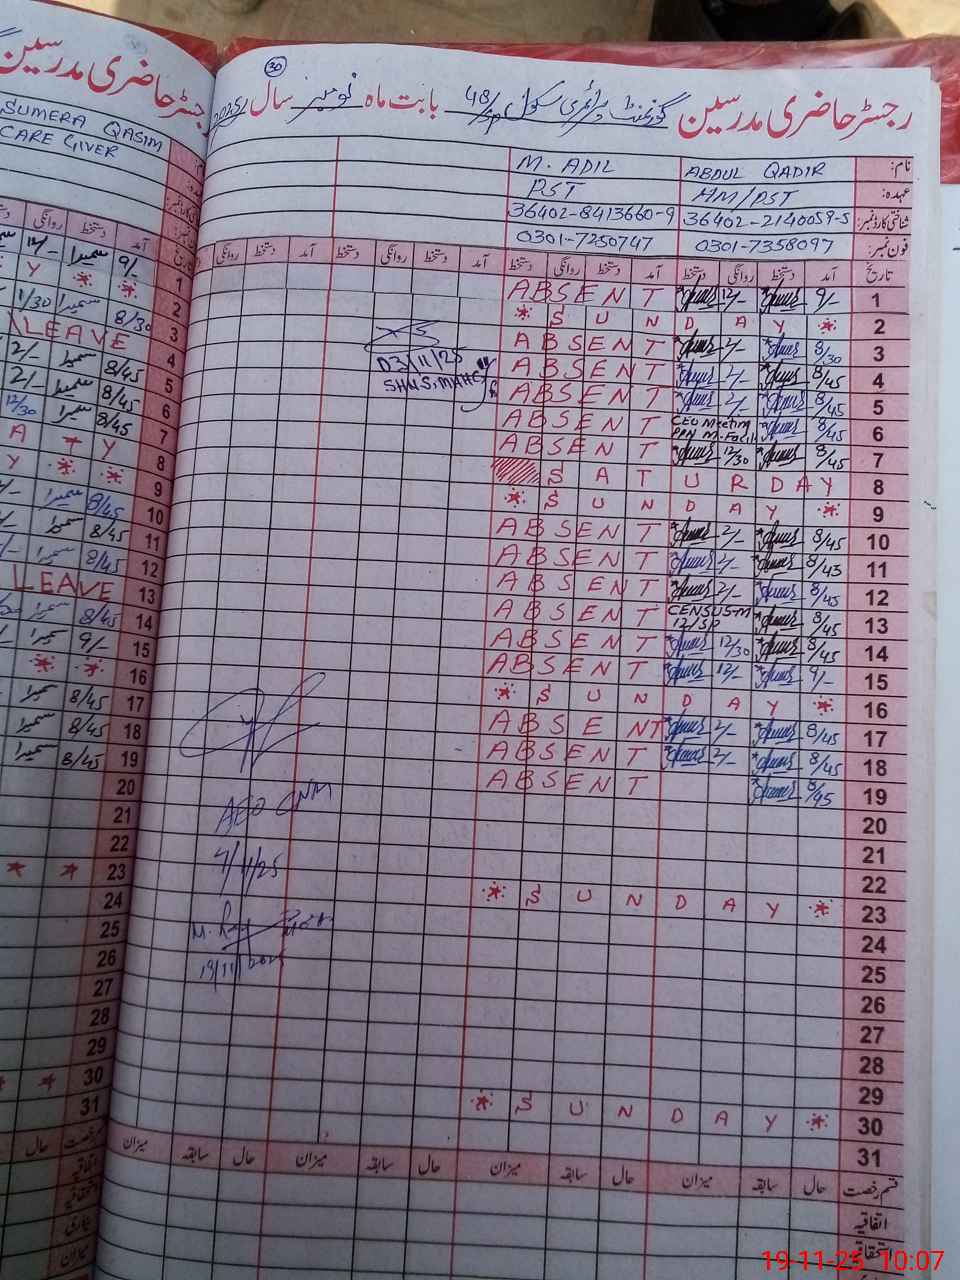 رجسٹر حاضری مدرسین
SUMERA QASIM
CARE GIVER
30
رجسٹر حاضری مدرسین گورنمنٹ پرائمری سکول 48/SP بابت ماہ نومبر سال 2025ء
نام: ABDUL QADIR M. ADIL
عہدہ: HM/PST PST
شناختی کارڈ نمبر: 36402-2140059-5 36402-8413660-9
فون نمبر: 0301-7358097 0301-7250747
تاریخ آمد دستخط روانگی دستخط آمد دستخط روانگی دستخط آمد دستخط روانگی دستخط آمد دستخط روانگی
1 9/- 12/- ABSENT
2 * SUNDAY *
3 8/30 2/- ABSENT
4 8/45 2/- ABSENT
5 8/45 2/- ABSENT
6 8/45 CEO Meeting ABSENT
7 8/45 12/30 ABSENT
8 SATURDAY
9 * SUNDAY *
10 8/45 2/- ABSENT
11 8/45 2/- ABSENT
12 8/45 2/- ABSENT
13 8/45 CENSUS-M 12/SP ABSENT
14 8/45 12/30 ABSENT
15 9/- 12/- ABSENT
16 * SUNDAY *
17 8/45 2/- ABSENT
18 8/45 2/- ABSENT
19 8/45 ABSENT
20
21
22
23 * SUNDAY *
24
25
26
27
28
29
30 * SUNDAY *
31
03/11/25
AEO
4/11/25
19/11/2025
قسم رخصت حال سابقہ میزان حال سابقہ میزان حال سابقہ میزان حال سابقہ میزان
اتفاقیہ
استحقاقیہ
آمد دستخط روانگی
1 9/- سمیرا 12/-
2 * * Y
3 8/30 سمیرا 1/30
4 LEAVE
5 8/45 سمیرا 2/-
6 8/45 سمیرا 2/-
7 8/45 سمیرا 12/30
8 Y A
9 * * Y
10 8/45 سمیرا
11 8/45 سمیرا
12 8/45 سمیرا
13 LEAVE
14 8/45 سمیرا
15 9/- سمیرا
16 * *
17 8/45 سمیرا
18 8/45 سمیرا
19 8/45 سمیرا
20
21
22
23 * *
24
25
26
27
28
29
30 * *
31
رخصت حال
اتفاقیہ
استحقاقیہ
بیماری
میزان
19-11-25 10:07